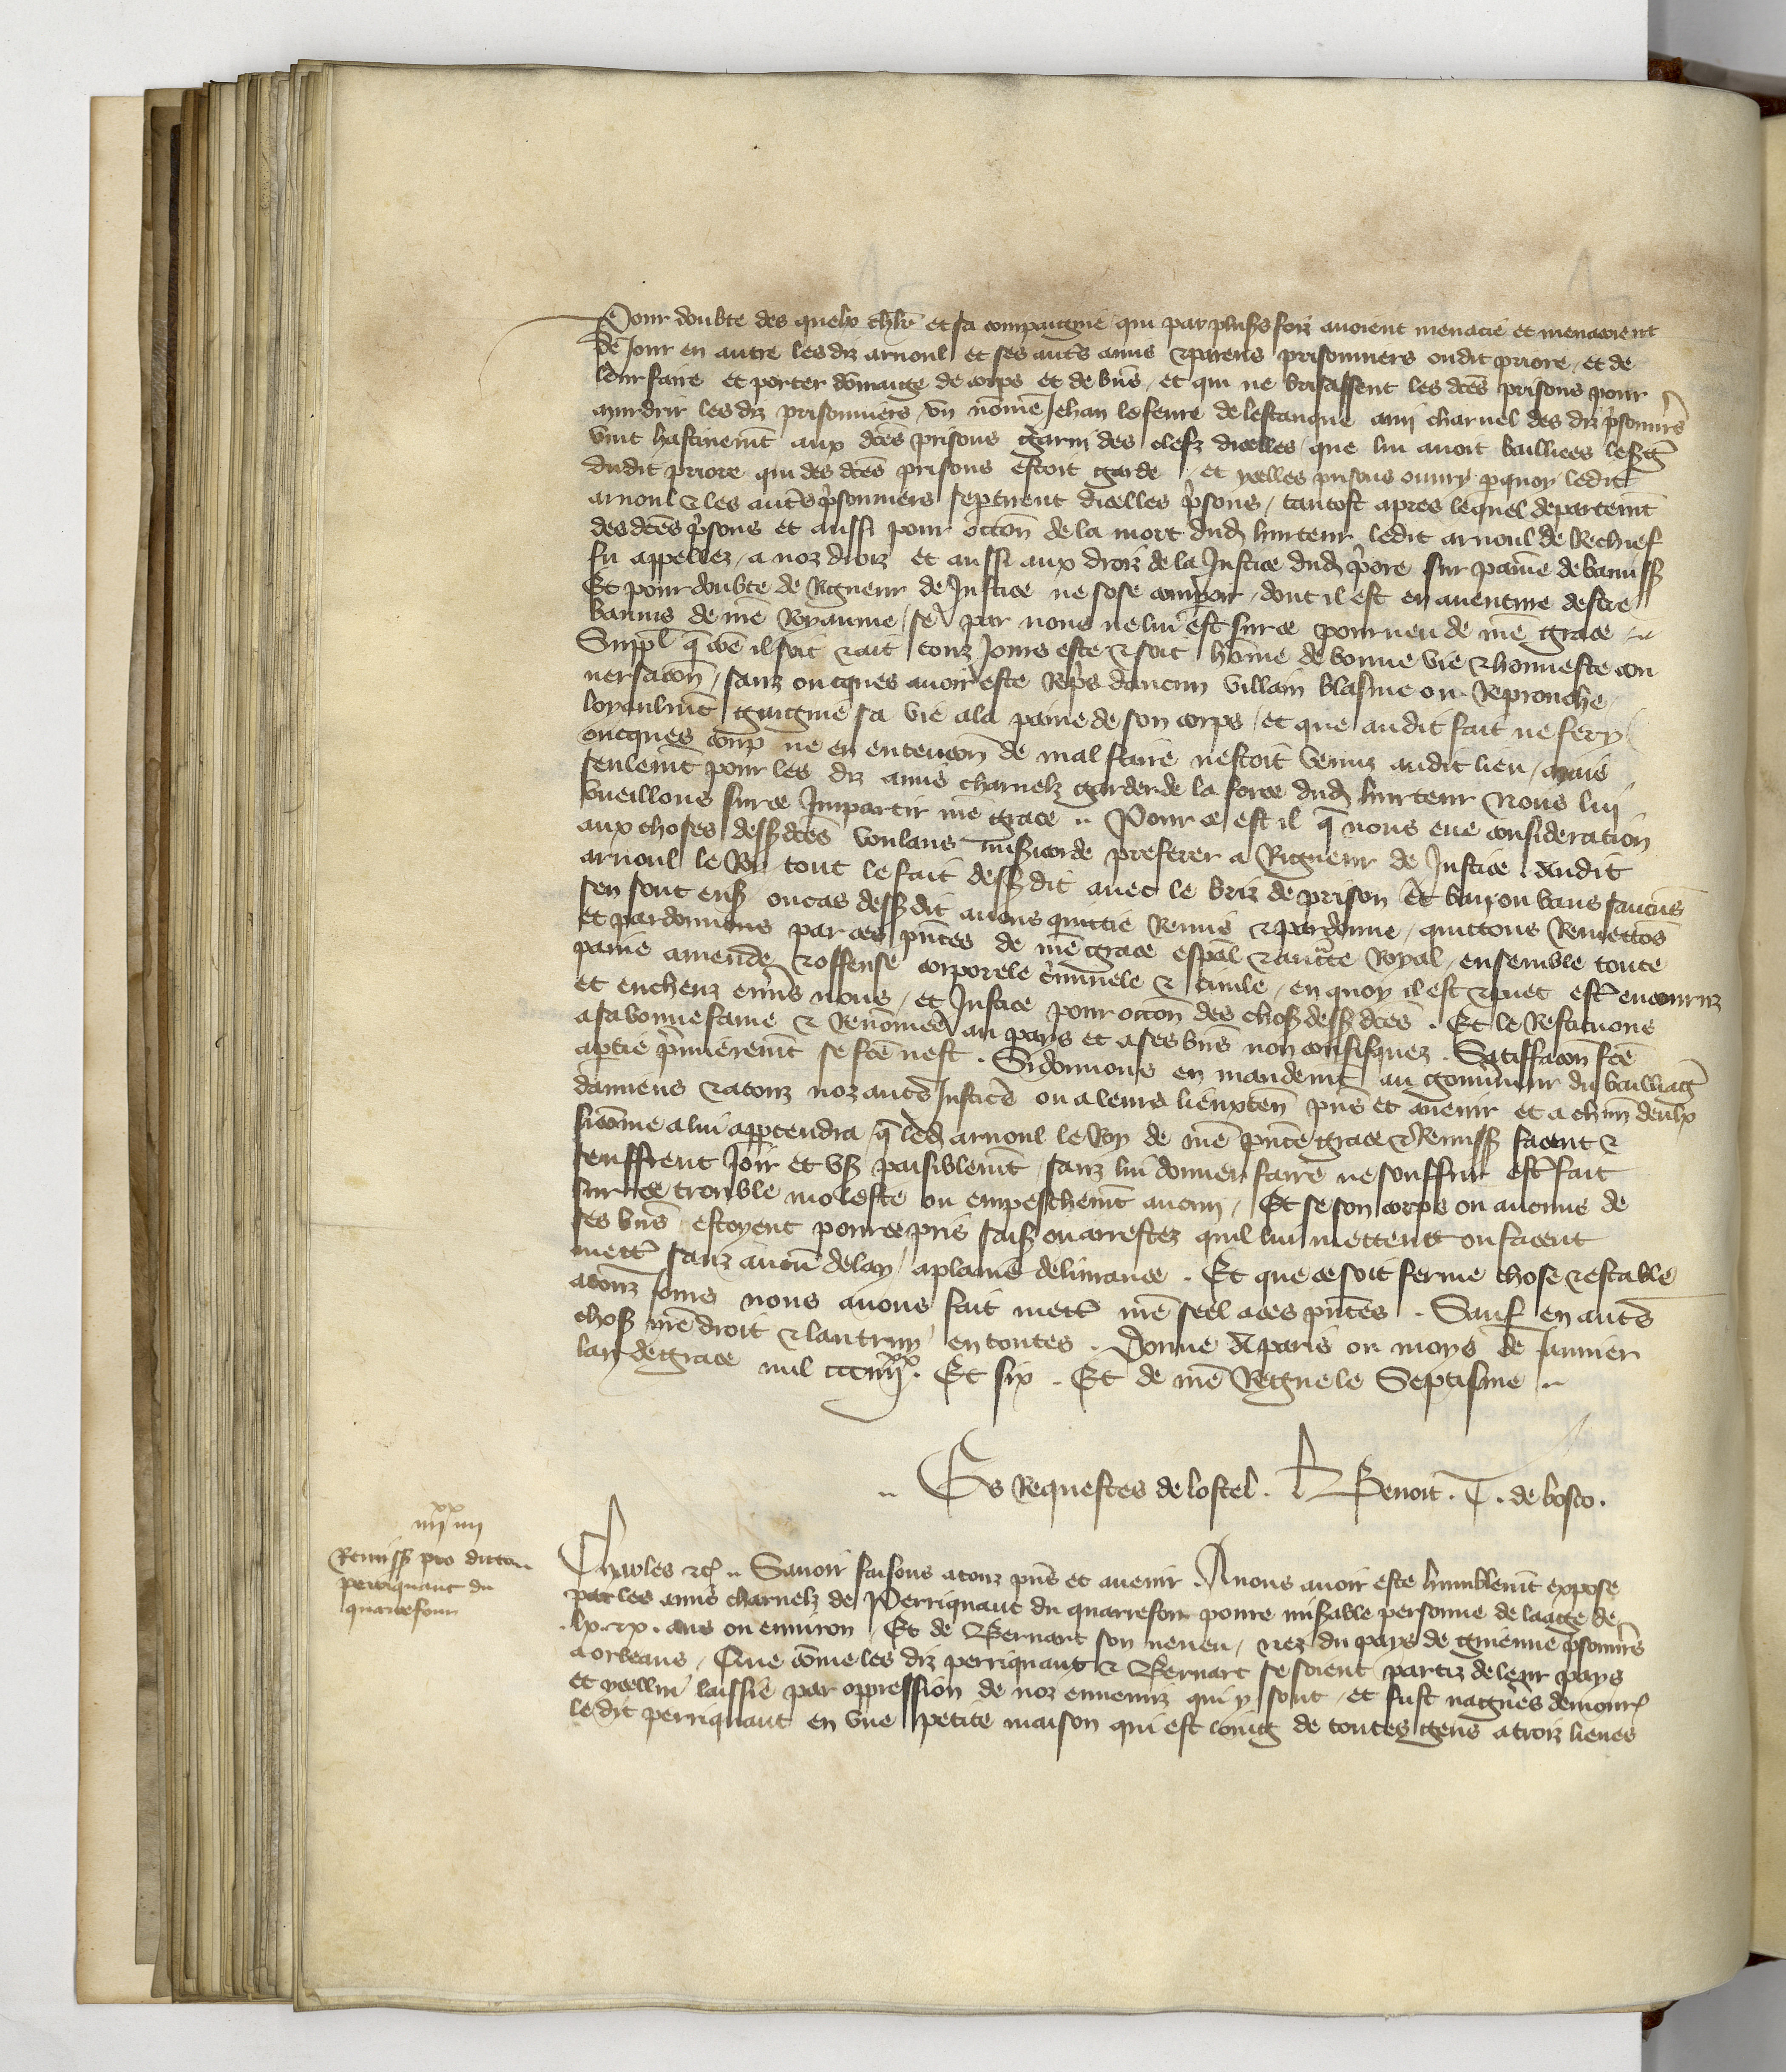 Pour doubte des quelx chlr̄ et sa compaignie qui par plusꝰs foiz avoient menacié et menacoient
de jour en autre les diz arnoul et ses autꝰs amis ⁊ parens prisonniers oudit priore / et de
leur faire et porter dōmaige de corps et de biēs / et qui ne brisassent les dc̄es prisons pour
murdrir les diz prisonniers / un nōme Jehan lefevre de lestanque ami charnel des diz p̄sonnirs
vint hastivemt̄ aux dc̄es prisons garni des clefz dicelles / que lui avoit baillees
dudit priore qui des dc̄es prisons estoit garde / et ycelles prisons ouvry pquoy ledit
arnoul ⁊ les autꝰs p̄sonniers se ptirent dicelles p̄sons / tantost apres lequel departemt̄
des dc̄es p̄sons et aussi pour occōn de la mort dud hurteur ledit arnoul de Rechief
fu appellez / a noz droiz et aussi aux droiz de la Justice dud p̄ore sur paine de baniss
Et pour doubte de Rigueur de Justice ne sose comparoir / dont il est en aventure destre
bannis de nr̄e Royaume / se par nous ne lui est sur ce pourveu de nr̄e grace
Suppl̄ q̄ cōe il soit ⁊ ait touz jours este ⁊ soit hōme de bonne vie ⁊ honneste con
versacōn / sanz oncques avoir este Reprs daucun villain blasme ou Reprouche
loyaulmt̄ gaigne sa vie a la paine de son corps / et que audit fait ne fery
oncques coup ne en entencōn de mal faire nestoit venuz audit lieu / mais
seulemt̄ pour les diz amis charnelz garder de la force dud hurteur Nous lui
vueillons sur ce Impartir nr̄e grace .. Pour ce est il q̄ nous eue consideration
aux choses dessdc̄es voulans misꝰicorde preferer a Rigueur de Justice . Audit
arnoul le Roy tout le fait dessdit avec le briz de prison et ban ou bans saucuns
sen sont ens̄ ou cas dessdit avons quictie Remis ⁊ pardonne / quittons Remettōs
et pardonnons par ces pn̄tes de nr̄e grace esp̄al ⁊ auctte Royal / ensemble toute
paine amende ⁊ offense corporele c̄minele ⁊ civile / en quoy il est ⁊ puet estr̄ encouruz
et encheuz enṽs nous / et Justice pour occōn des chos̄ dessdc̄es . Et le Restituons
a sa bonne fame ⁊ Renōmee au pays et a ses biēs non confisquez . Satiffacōn fc̄e
a ptie p̄mieremt̄ se fc̄e nest . Si donnons en mandemt̄ au gouvneur du bailliage
damiens ⁊ a touz noz autꝰs Justic̄s ou a leurs lieuxten̄ pn̄s et avenir et a chūn deulx
si cōme a lui appartendra / q̄ led arnoul le Roy de nr̄e pn̄te grace ⁊ Remiss facent ⁊
seuffrent Joir et us̄ paisiblemt̄ / sanz lui donner faire ne souffrir estr̄ fait
sur ce trouble moleste ou empeschemt̄ aucun / Et se son corps ou aucuns de
ses biēs estoyent pour ce pris saisiz ou arrestez quil lui mettent ou facent
mettr̄ sanz aucū delay / a plaine delivrance . Et que ce soit ferme chose ⁊ estable
a touz Jours nous avons fait mettr̄ nr̄e seel a ces pn̄tes . Sauf en autꝰs
chos̄ nr̄e droit ⁊ lautruy en toutes . Donne A paris ou moys de Janvier
lan de grace mil cccIIIIxx . Et six . Et de nr̄e Regne le Septisme ..
.. Es Requestes de lostel . Benoit . T . de bosco .
IIIIxx IIII
Remiss pro dicto
perriquaut du
quarrefour
Charles ⁊c̄ .. Savoir faisons a touz pn̄s et avenir . A nous avoir este humblemt̄ expose
par les amis charnelz de Perriquaut du quarrefour povre misꝰable personne de laage de
. lx . ⁊ x . ans ou environ Et de Bernart son neveu / nez du pays de guienne p̄sonnirs
a orleans / Que cōme les diz perriquaut ⁊ Bernart se soient partiz de leur pays
et ycellui laissie par oppression de noz ennemiz qui y sont / et fust nagues demour̄
ledit perriquaut en une petite maison qui est loing de toutes gens a troiz lieues